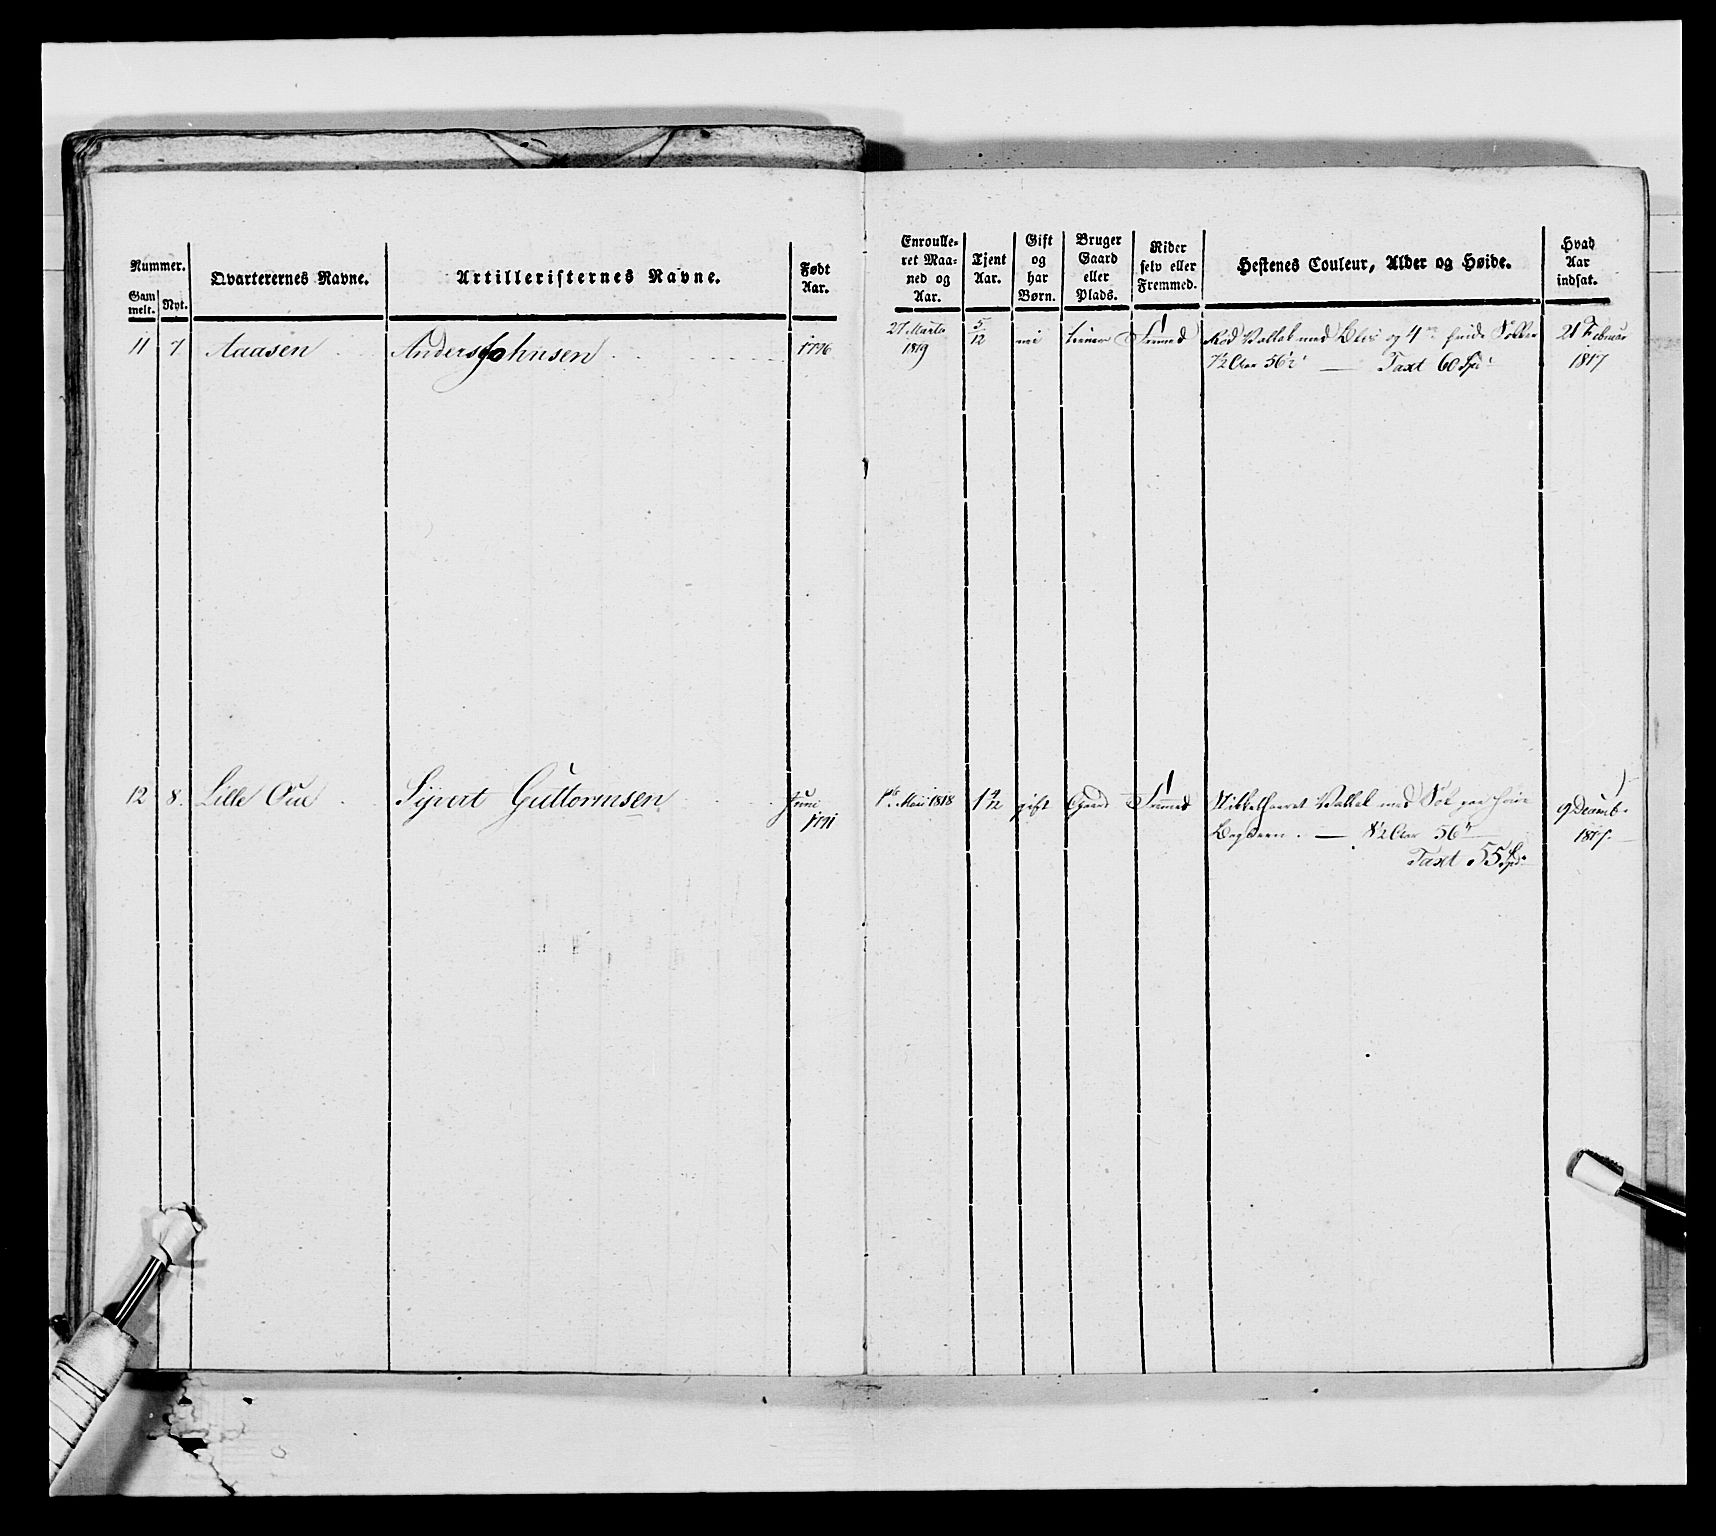 Nummer.
Gam
melt.
Nyt.
Qvarterernes Navne.
Artilleristernes Navne.
Født
Aar.
Enroulle-
ret Maa-
ned og
Aar.
Tjent
Aar.
Gift
og
har
Børn.
Bruger
Gaard
eller
Plads.
Rider
selv eller
Fremmed.
Hestenes Couleur, Alder og Høide.
Hvad
Aar
indsat.
11 7 Aaasen Anders Johnsen 1796
27 Marts
1819
5/12
nei
tiener
Fremmed
Rød Vallak med Blis og 4re hvide Sokker
7½ Aar 56½" — Taxt 60 Spd
21 Februar
1817
12 8. Lille Oue Sivert Guttormsen Juni
1791
1ste Mai 1818
1 4/12
gift
Gaard
Fremmed
Vallak med paa høire
Bagbeen. — 8½ Aar 56"
Taxt 55 Spd.
9 Decemb.
1817.